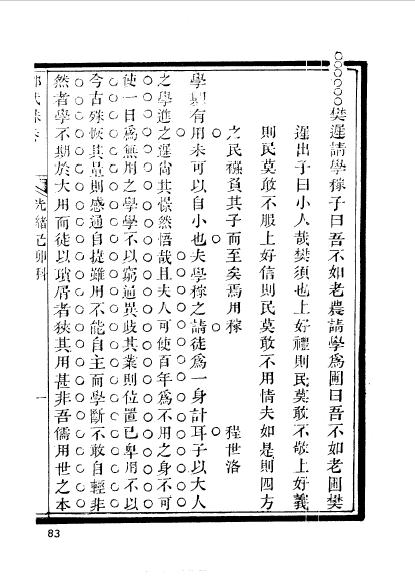 樊遲請學稼子曰吾不如老農請學爲圃曰吾不如老圃樊
遲出子曰小人哉樊須也上好禮則民莫敢不敬上好義
則民莫敢不服上好信則民莫敢不用情夫如是則四方
之民襁負其子而至矣焉用稼
程世洛
學則有用未可以自小也夫學稼之請徒爲一身計耳子以大人
之學進之遲尙其憬然悟哉且夫人可使百年爲不用之身不可
使一日爲無用之學學不以窮通異歧其業則位置已卑用不以
今古殊恢其量則感通自捷雖用不能自主而學斷不敢自輕非
然者學不期於大用而徒以瑣屑者狹其用甚非吾儒用世之本
光緒己卯科
一
83